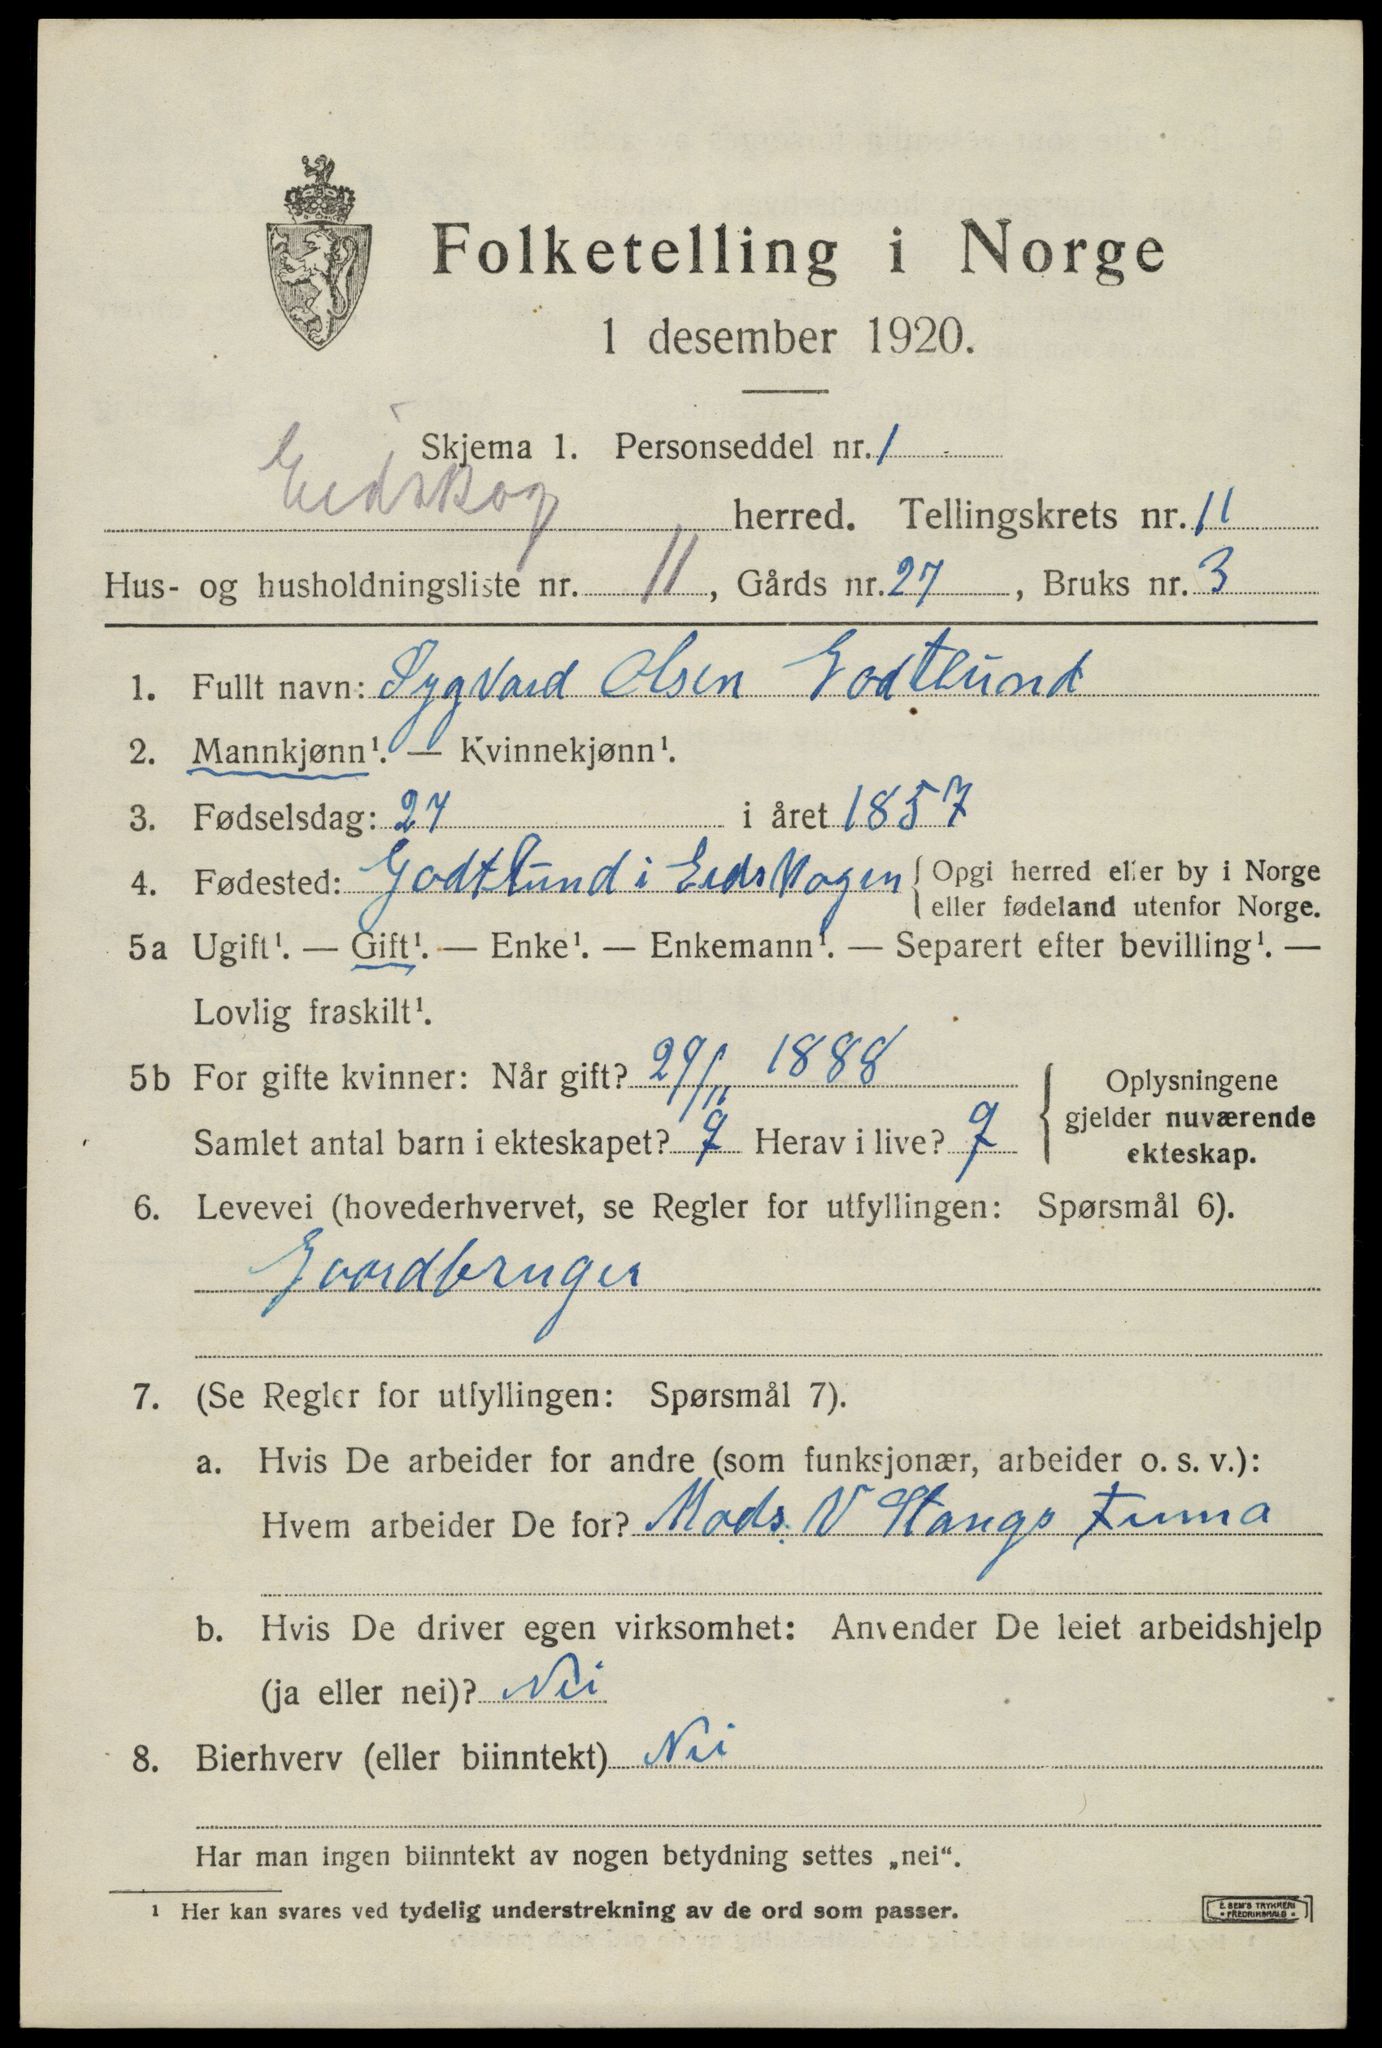 Folketelling i Norge
1 desember 1920.
Skjema 1. Personseddel nr. 1
Eidskog herred. Tellingskrets nr. 11
Hus- og husholdningsliste nr. 11, Gårds nr. 27, Bruks nr. 3
1. Fullt navn: Sygvard Olsen Godtlund
2. Mannkjønn¹. — Kvinnekjønn¹.
3. Fødselsdag: 27 i året 1857
4. Fødested: Godtlund i Eidskogen { Opgi herred eller by i Norge
eller fødeland utenfor Norge.
5a Ugift¹. — Gift¹. — Enke¹. — Enkemann¹. — Separert efter bevilling¹. —
Lovlig fraskilt¹.
5b For gifte kvinner: Når gift? 29/11 1888
Samlet antal barn i ekteskapet? 9 Herav i live? 9
{ Oplysningene
gjelder nuværende
ekteskap.
6. Levevei (hovederhvervet, se Regler for utfyllingen: Spørsmål 6).
Gaardbruger
7. (Se Regler for utfyllingen: Spørsmål 7).
a. Hvis De arbeider for andre (som funksjonær, arbeider o. s. v.):
Hvem arbeider De for? Mads. V Stangs Firma
b. Hvis De driver egen virksomhet: Anvender De leiet arbeidshjelp
(ja eller nei)? Nei
8. Bierhverv (eller biinntekt) Nei
Har man ingen biinntekt av nogen betydning settes „nei“.
¹ Her kan svares ved tydelig understrekning av de ord som passer.
E. SEM'S TRYKKERI
• FREDRIKSHALD •